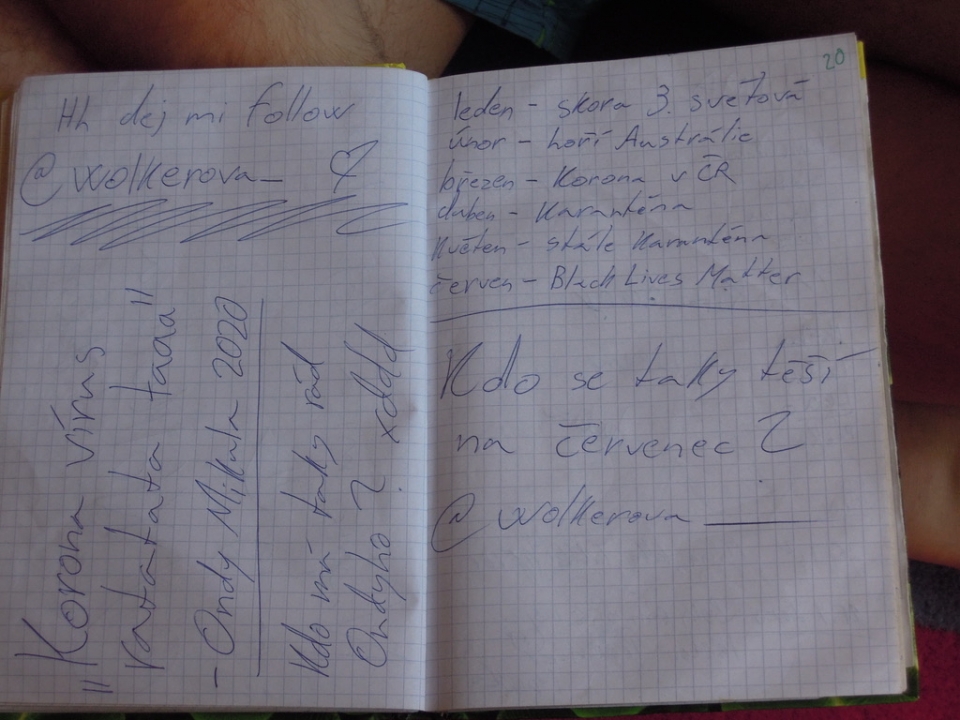 Hh dej mi follow
@wolkerova_
"Korona vírus
ratatata taaa"
- Ondy Mikula 2020
Kdo má taky rád
Ondyho? xdddd
20
leden - skora 3. světová
únor - hoří Austrálie
březen - Korona v ČR
duben - Karanténa
Květen - stále Karanténa
červen - Black Lives Matter
Kdo se taky těší
na červenec?
@wolkerova_